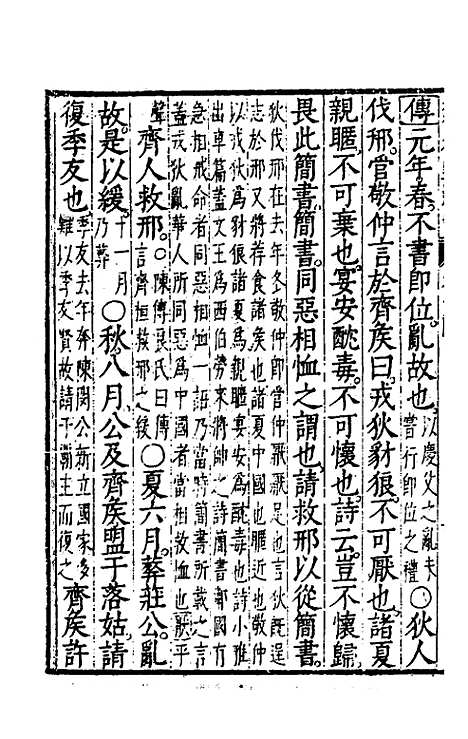 傳元年春不書即位亂故也以慶父之亂未嘗行即位之禮〇狄人
伐邢管敬仲言於齊侯曰戎狄豺狼不可厭也諸夏
親暱不可棄也宴安酖毒不可懷也詩云豈不懷歸
畏此簡書簡書同惡相恤之謂也請救邢以從簡書
狄伐邢在去年冬敬仲即管仲厭足也言狄既逞
志於邢又將荐食諸侯也諸夏中國也暱近也敬仲
以戎狄為豺狼諸夏為親暱宴安為酖毒也詩小雅
出車篇蓋文王為西伯勞來將帥之詩簡書鄰國有
急相戒命者同惡相恤一語乃當時簡書所載之言
蓋戎狄亂華人所同惡為中國者當相救恤也厭平
聲齊人救邢〇陳傳良氏曰傳言齊桓救邢之緩〇夏六月葬莊公亂
故是以緩十一月乃葬〇秋八月公及齊侯盟于落姑請
復季友也季友去年奔陳閔公新立國家多難以季友賢故請于霸主而復之齊侯許